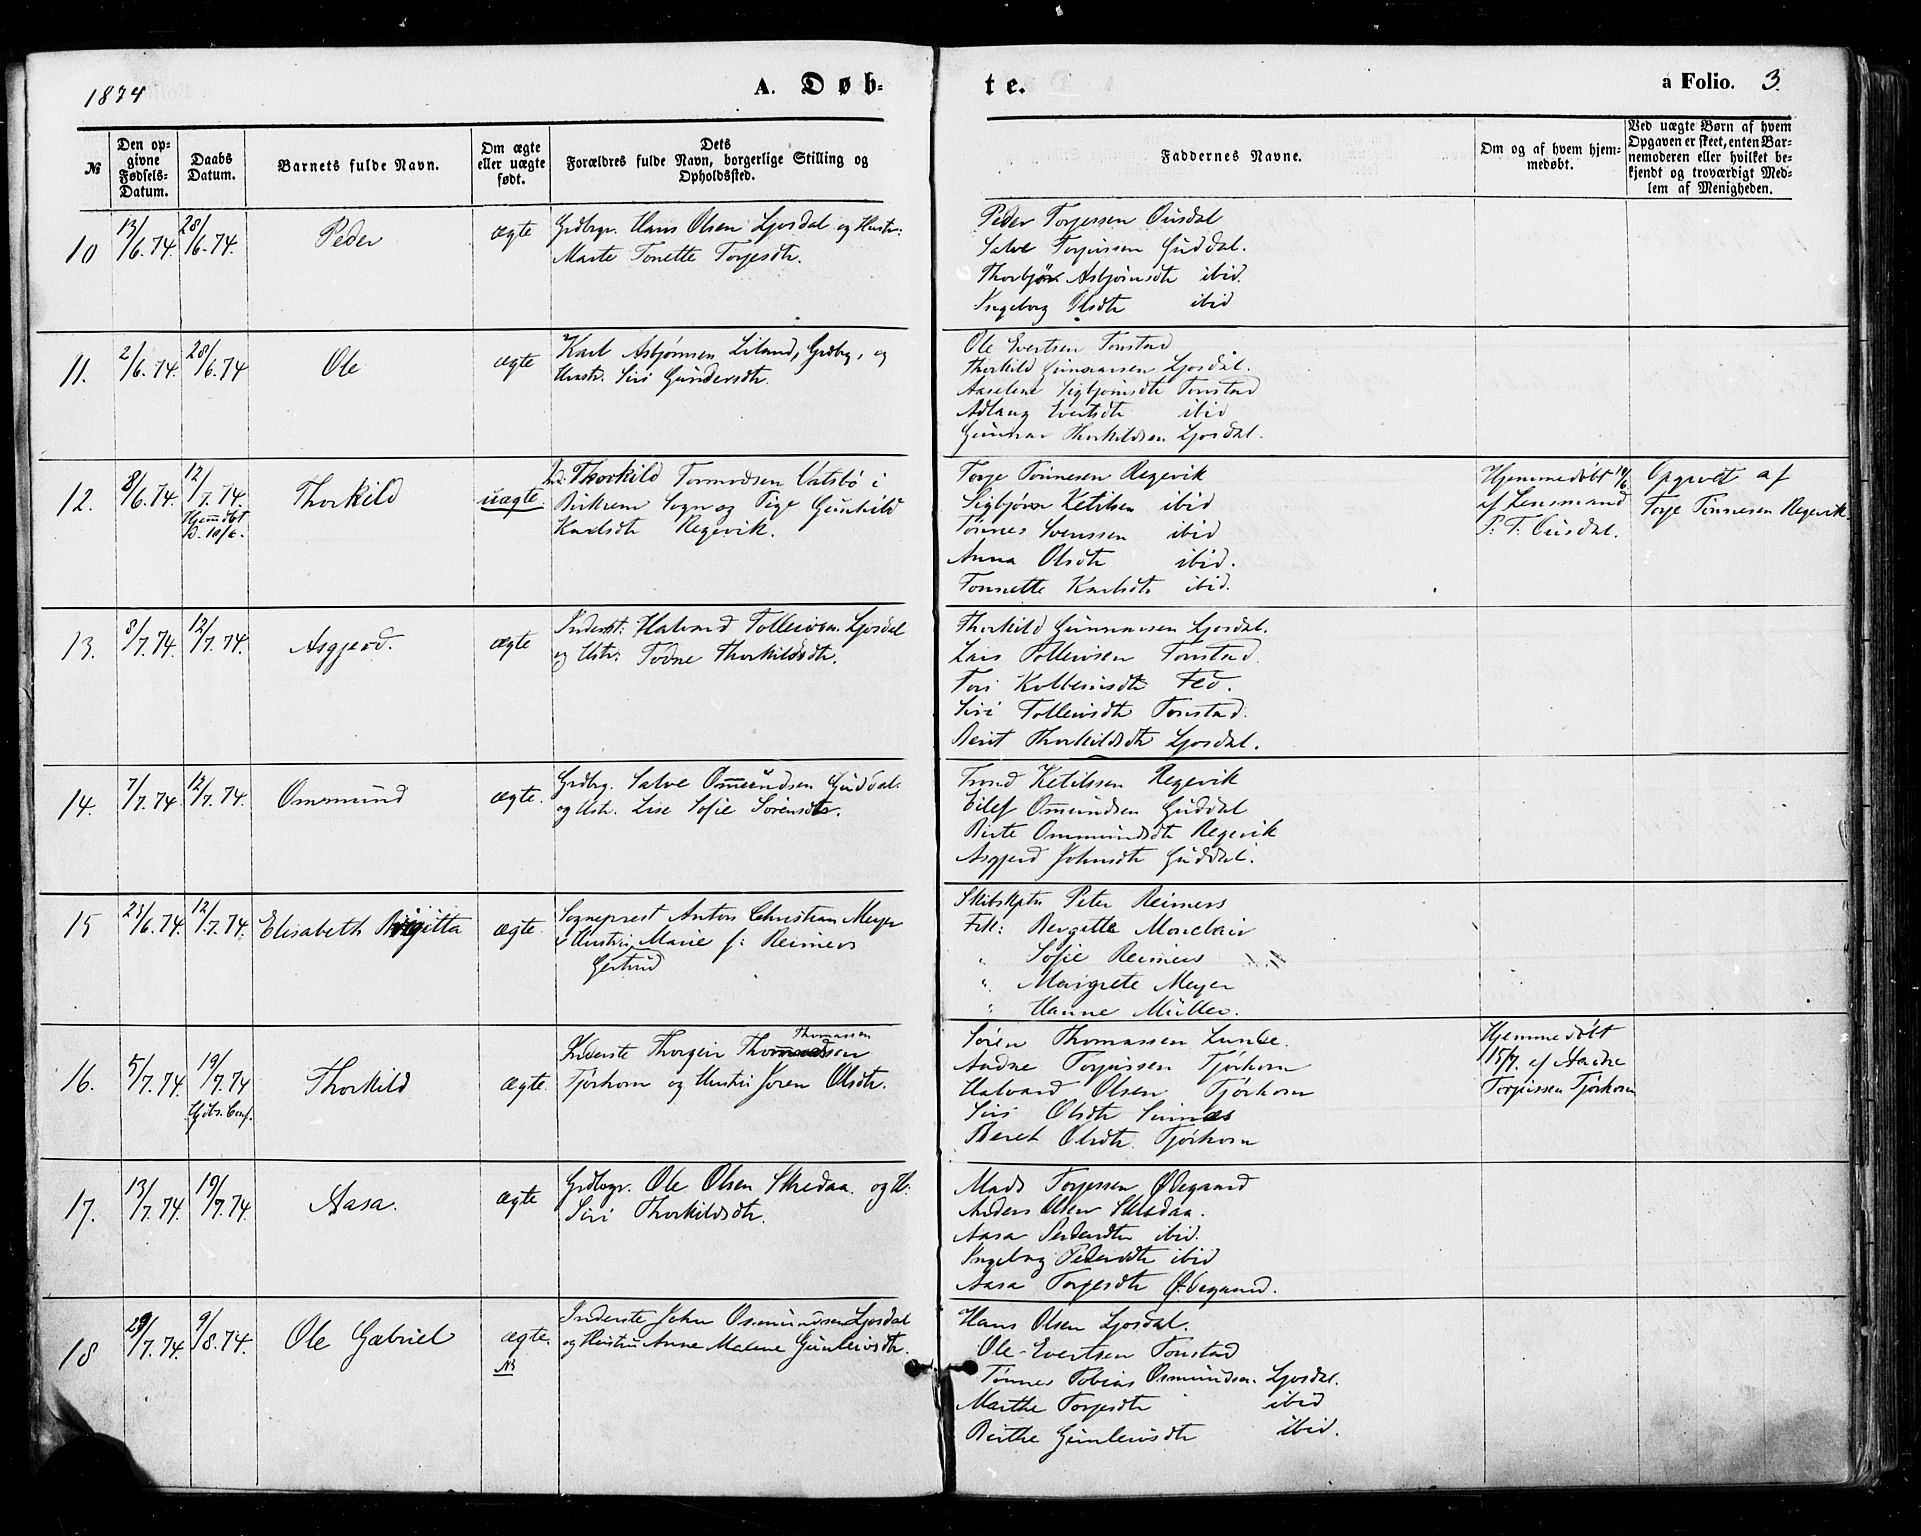 1874
A. Døb-
te.
a Folio. 3.
№
Den opgivne Fødsels-Datum.
Daabs Datum.
Barnets fulde Navn.
Om ægte eller uægte født.
Dets Forældres fulde Navn, borgerlige Stilling og Opholdssted.
Faddernes Navne.
Om og af hvem hjemmedøbt.
Ved uægte Børn af hvem Opgaven er skeet, enten Barnemoderen eller hvilket bekjendt og troværdigt Medlem af Menigheden.
10 13/6.74. 28/6.74. Peder ægte
Grdbrgr. Hans Olsen Ljosdal og Hustr:
Marte Tonette Torjesdtr.
Peder Torjessen Ousdal
Salve Torjussen Guddal.
Thorbjør Asbjørnsdtr ibid.
Ingeborg Olsdtr ibid
11. 2/6.74. 28/6.74 Ole ægte
Karl Asbjørnsen Liland, Grdbrg., og
Hustr. Siri Gundersdtr.
Ole Evertsen Tonstad
Thorkild Gunnarsen Ljosdal.
Aaselene Sigbjørnsdtr Tonstad
Adlaug Evertsdtr ibid
Gunnar Thorkildsen Ljosdal.
12. 8/6.74. 12/7.74. Thorkild uægte.
Hjemdbt
D. 10/6.
Thorkild Tormodsen Vatsbø i
Birkrem Sogn og Pige Gunhild
Karlsdtr Regevik.
Torje Tønnesen Regevik
Sigbjørn Ketilsen ibid
Tønnes Svenssen ibid
Anna Olsdtr ibid.
Tonnette Karlsdtr ibid.
Hjemmedøbt 10/6
af Lensmand
P. T. Ousdal.
Opgivet af
Torje Tønnesen Regevik.
13. 8/7.74. 12/7.74. Asgjerd. ægte
Inderst: Halvard Tolleivsen Ljosdal
og Hstr: Todne Thorkildsdtr.
Thorkild Gunnarsen Ljosdal.
Lars Tolleivsen Tonstad
Tori Kolbeinsdtr Fed.
Siri Tolleivsdtr Tonstad.
Berit Thorkildsdtr Ljosdal.
14. 7/7.74. 12/7.74. Ommund ægte.
Grdbrg. Salve Omundsen Guddal.
og Hstr. Lise Sofie Sørensdtr.
Trond Ketilssen Regevik
Eilef Omundsen Guddal
Birte Ommundsdtr Regevik
Asgjerd Johnsdtr Guddal.
15 23/6.74. 12/7.74. Elisabeth Birgitta ægte.
Sogneprest Anton Christian Meyer
& Hustru Marie f: Reimers
Gertrud
Skibskptn Peter Reimers
Frk: Bergitte Monclair
" Sofie Reimers
" Margrete Meyer
" Hanne Müller.
16. 5/7.74. 19/7.74 Thorkild ægte.
Inderste Thorgeir Thomassen
Tjørhom og Hustru Joren Olsdtr.
Søren Thomassen Lunde.
Andne Torjussen Tjørhom
Halvard Olsen Tjørhom
Siri Olsdtr Sinnæs
Beret Olsdtr. Tjørhom
Hjemmedøbt
15/7. af Aadne
Torjussen Tjørhom
17. 13/7.74. 19/7.74. Aasa. ægte
Grdbrgr. Ole Olsen Skredaa. og H:
Siri Thorkildsdtr.
Mads Torjessen Ødegaard
Anders Olsen Skredaa.
Aasa Pedersdtr ibid.
Ingeborg Pedersdtr ibid
Aasa Torjesdtr Ødegaard.
18 29/7.74. 9/8.74. Ole Gabriel ægte.
Inderste John Osmundsen Ljosdal
og Hustru Anne Malene Gunleivsdtr.
Hans Olsen Ljosdal.
Ole Evertsen Tonstad
Tønnes Tobias Osmundsen Ljosdal.
Marthe Torjesdtr ibid
Birthe Gunleivsdtr ibid.